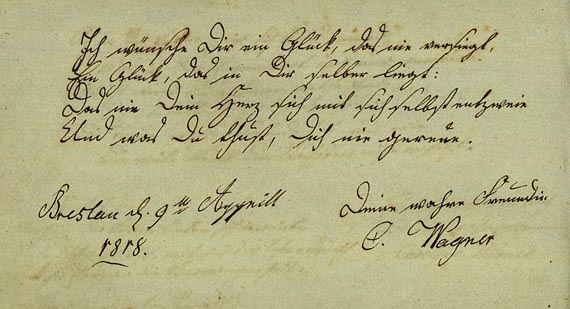 Ich wünsche Dir ein Glück, das nie versiegt,
Ein Glück, das in Dir selber liegt:
Das nie Dein Herz sich mit sich selbst entzweie
Und was Du thust, Dich nie gereue.
Breslau d. 9th Apprill
1818.
Deine wahre Freundin
C. Wagner